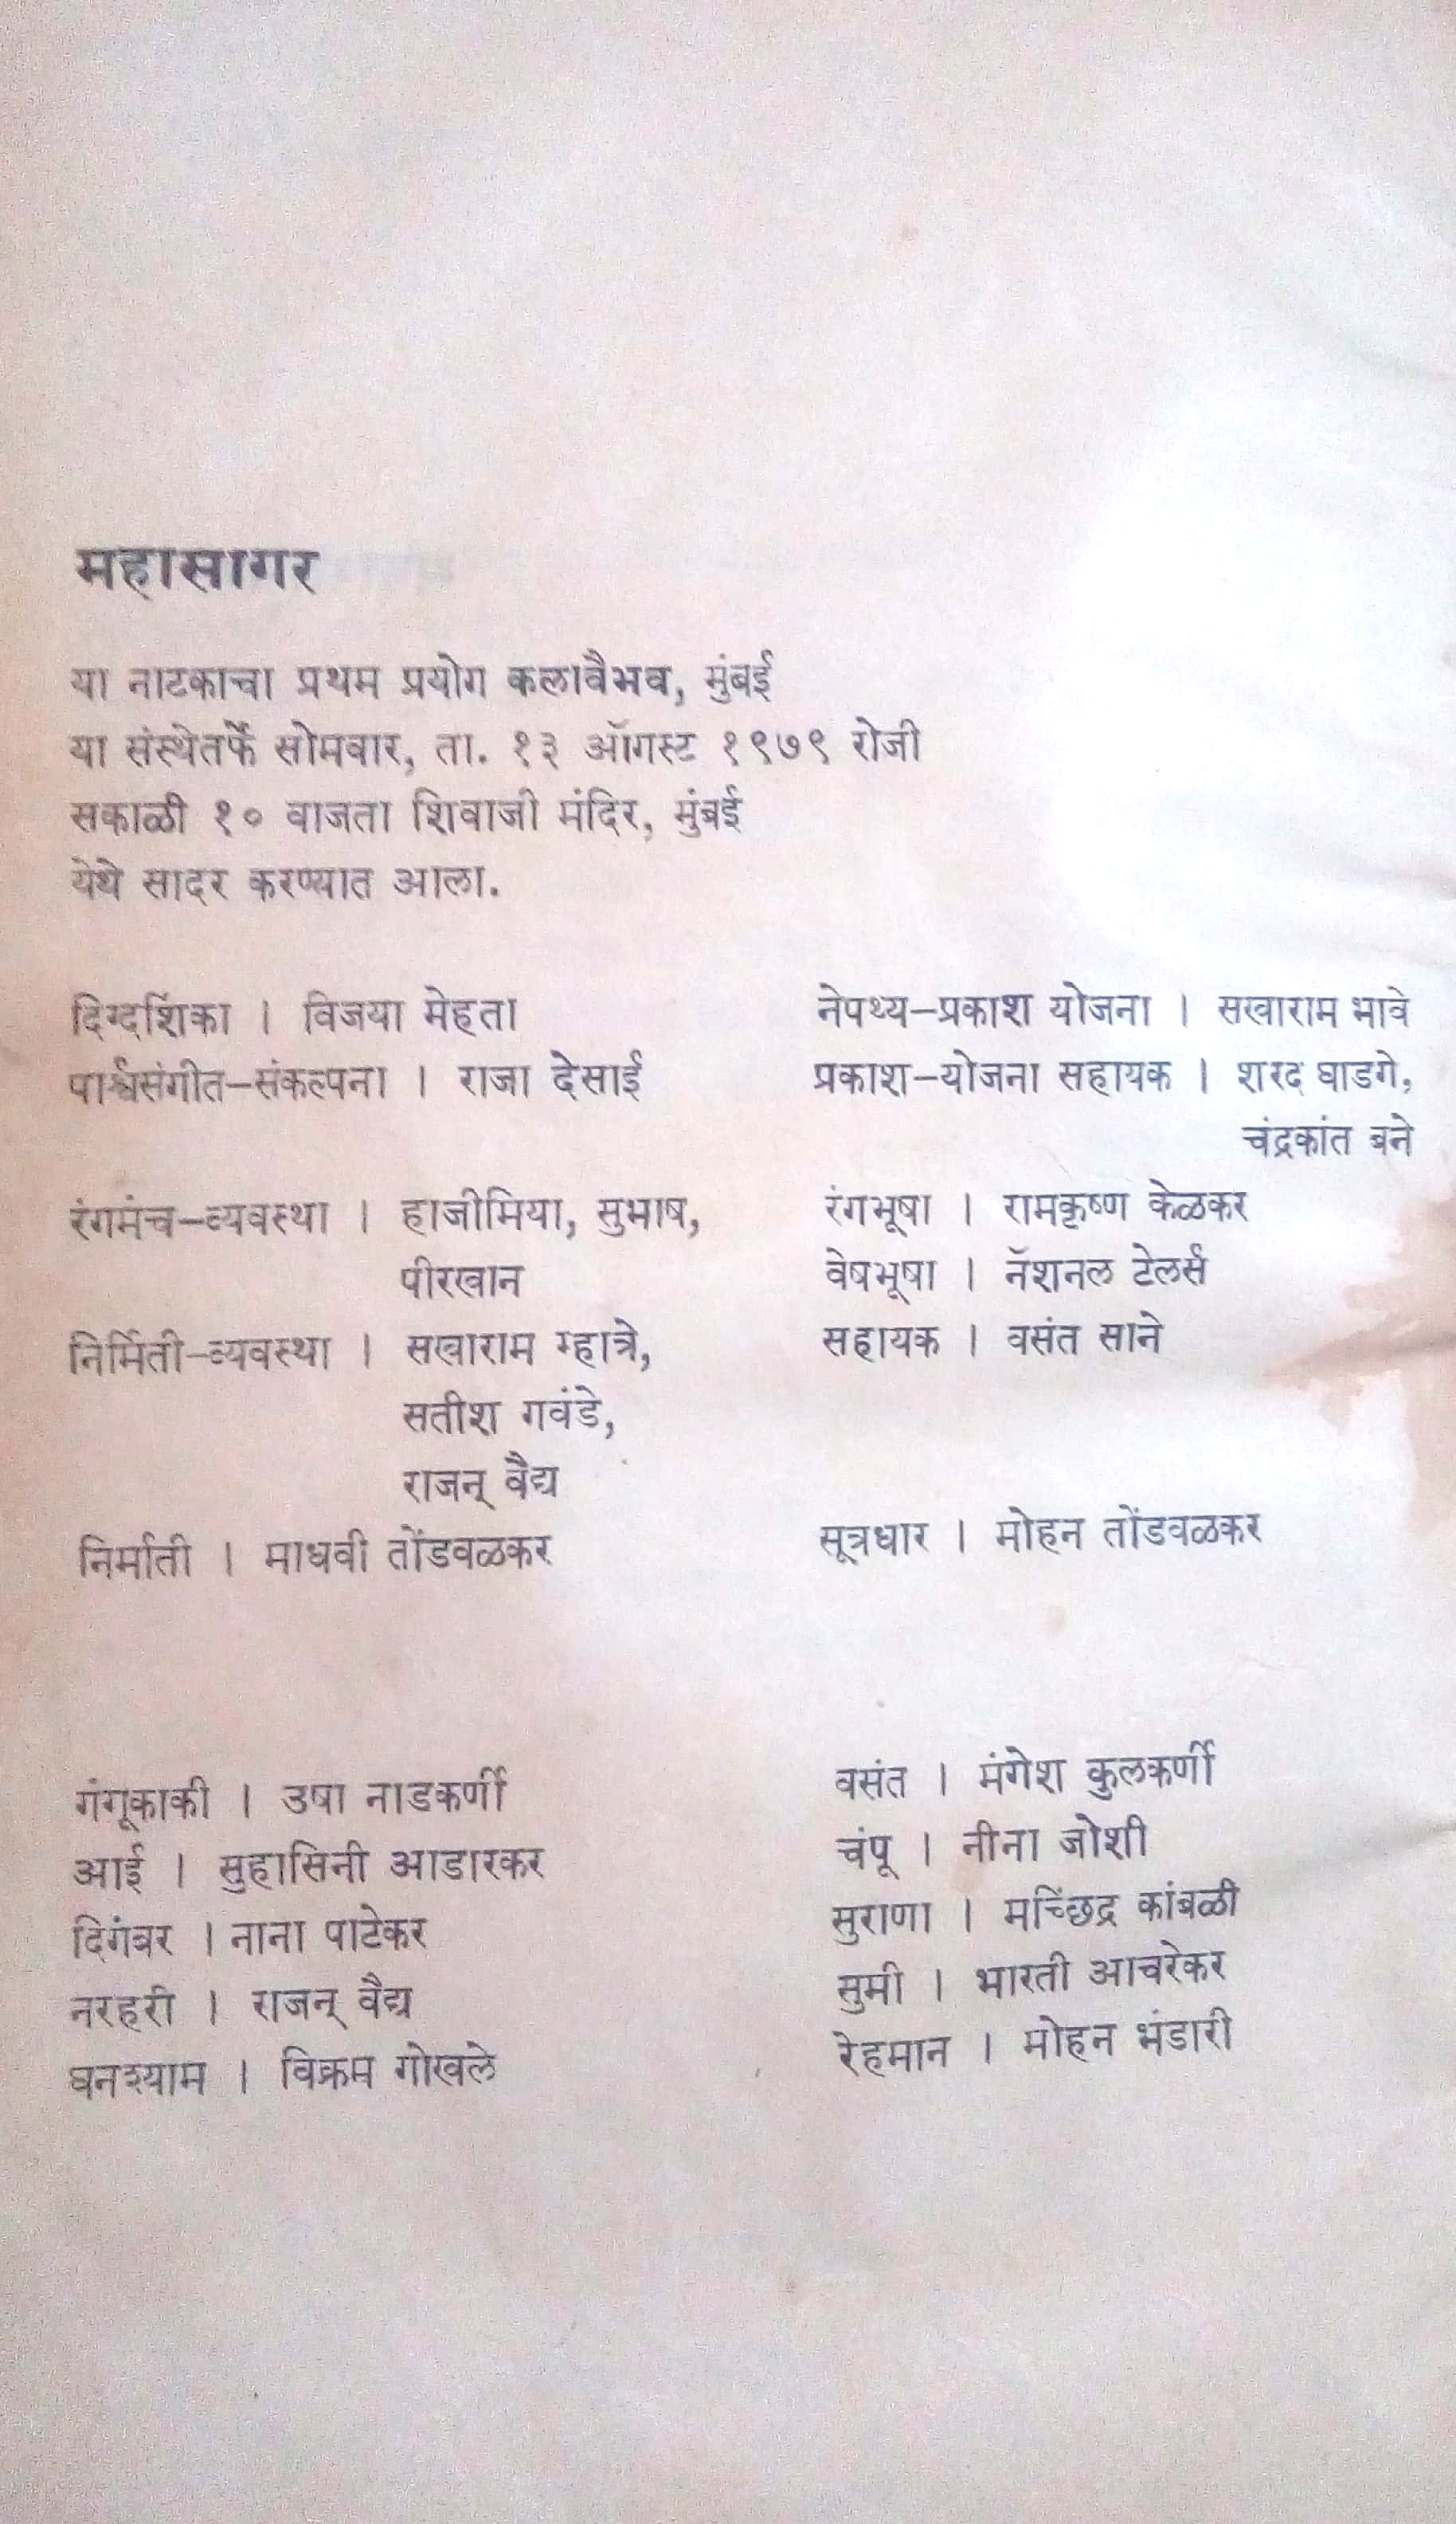 महासागर
या नाटकाचा प्रथम प्रयोग कलावैभव, मुंबई
या संस्थेतर्फे सोमवार, ता. १३ ऑगस्ट १९७९ रोजी
सकाळी १० वाजता शिवाजी मंदिर, मुंबई
येथे सादर करण्यात आला.
दिग्दर्शिका । विजया मेहता
पार्श्वसंगीत–संकल्पना । राजा देसाई
रंगमंच–व्यवस्था । हाजीमिया, सुभाष,
पीरखान
निर्मिती–व्यवस्था । सखाराम म्हात्रे,
सतीश गवंडे,
राजन् वैद्य
निर्माती । माधवी तोंडवळकर
नेपथ्य–प्रकाश योजना । सखाराम भावे
प्रकाश–योजना सहायक । शरद घाडगे,
चंद्रकांत बने
रंगभूषा । रामकृष्ण केळकर
वेषभूषा । नॅशनल टेलर्स
सहायक । वसंत साने
सूत्रधार । मोहन तोंडवळकर
गंगूकाकी । उषा नाडकर्णी
आई । सुहासिनी आडारकर
दिगंबर । नाना पाटेकर
नरहरी । राजन् वैद्य
घनश्याम । विक्रम गोखले
वसंत । मंगेश कुलकर्णी
चंपू । नीना जोशी
सुराणा । मच्छिंद्र कांबळी
सुमी । भारती आचरेकर
रेहमान । मोहन भंडारी